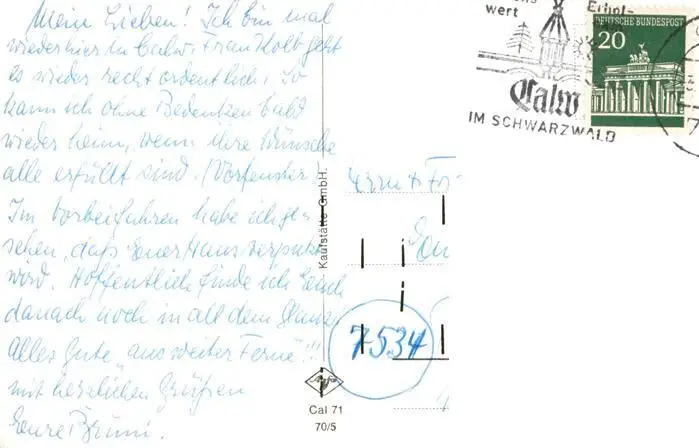 Meine Lieben! Ich bin mal
wieder hier in Calw. Frau Kolb geht
es wieder recht ordentlich. So
kann ich ohne Bedenken bald
wieder heim, wenn ihre Wünsche
alle erfüllt sind. (Vorfenster
Im Vorbeifahren habe ich ge-
sehen, daß Euer Haus verputzt
wird. Hoffentlich finde ich Euch
danach noch in all dem Glanz,
Alles Gute "aus weiter Ferne"!!!
mit herzlichen Grüßen
Eure Bruni.
Kaufstätte GmbH.
Cal 71
70/5
wert
Erhol-
Calw
IM SCHWARZWALD
DEUTSCHE BUNDESPOST
20
7534